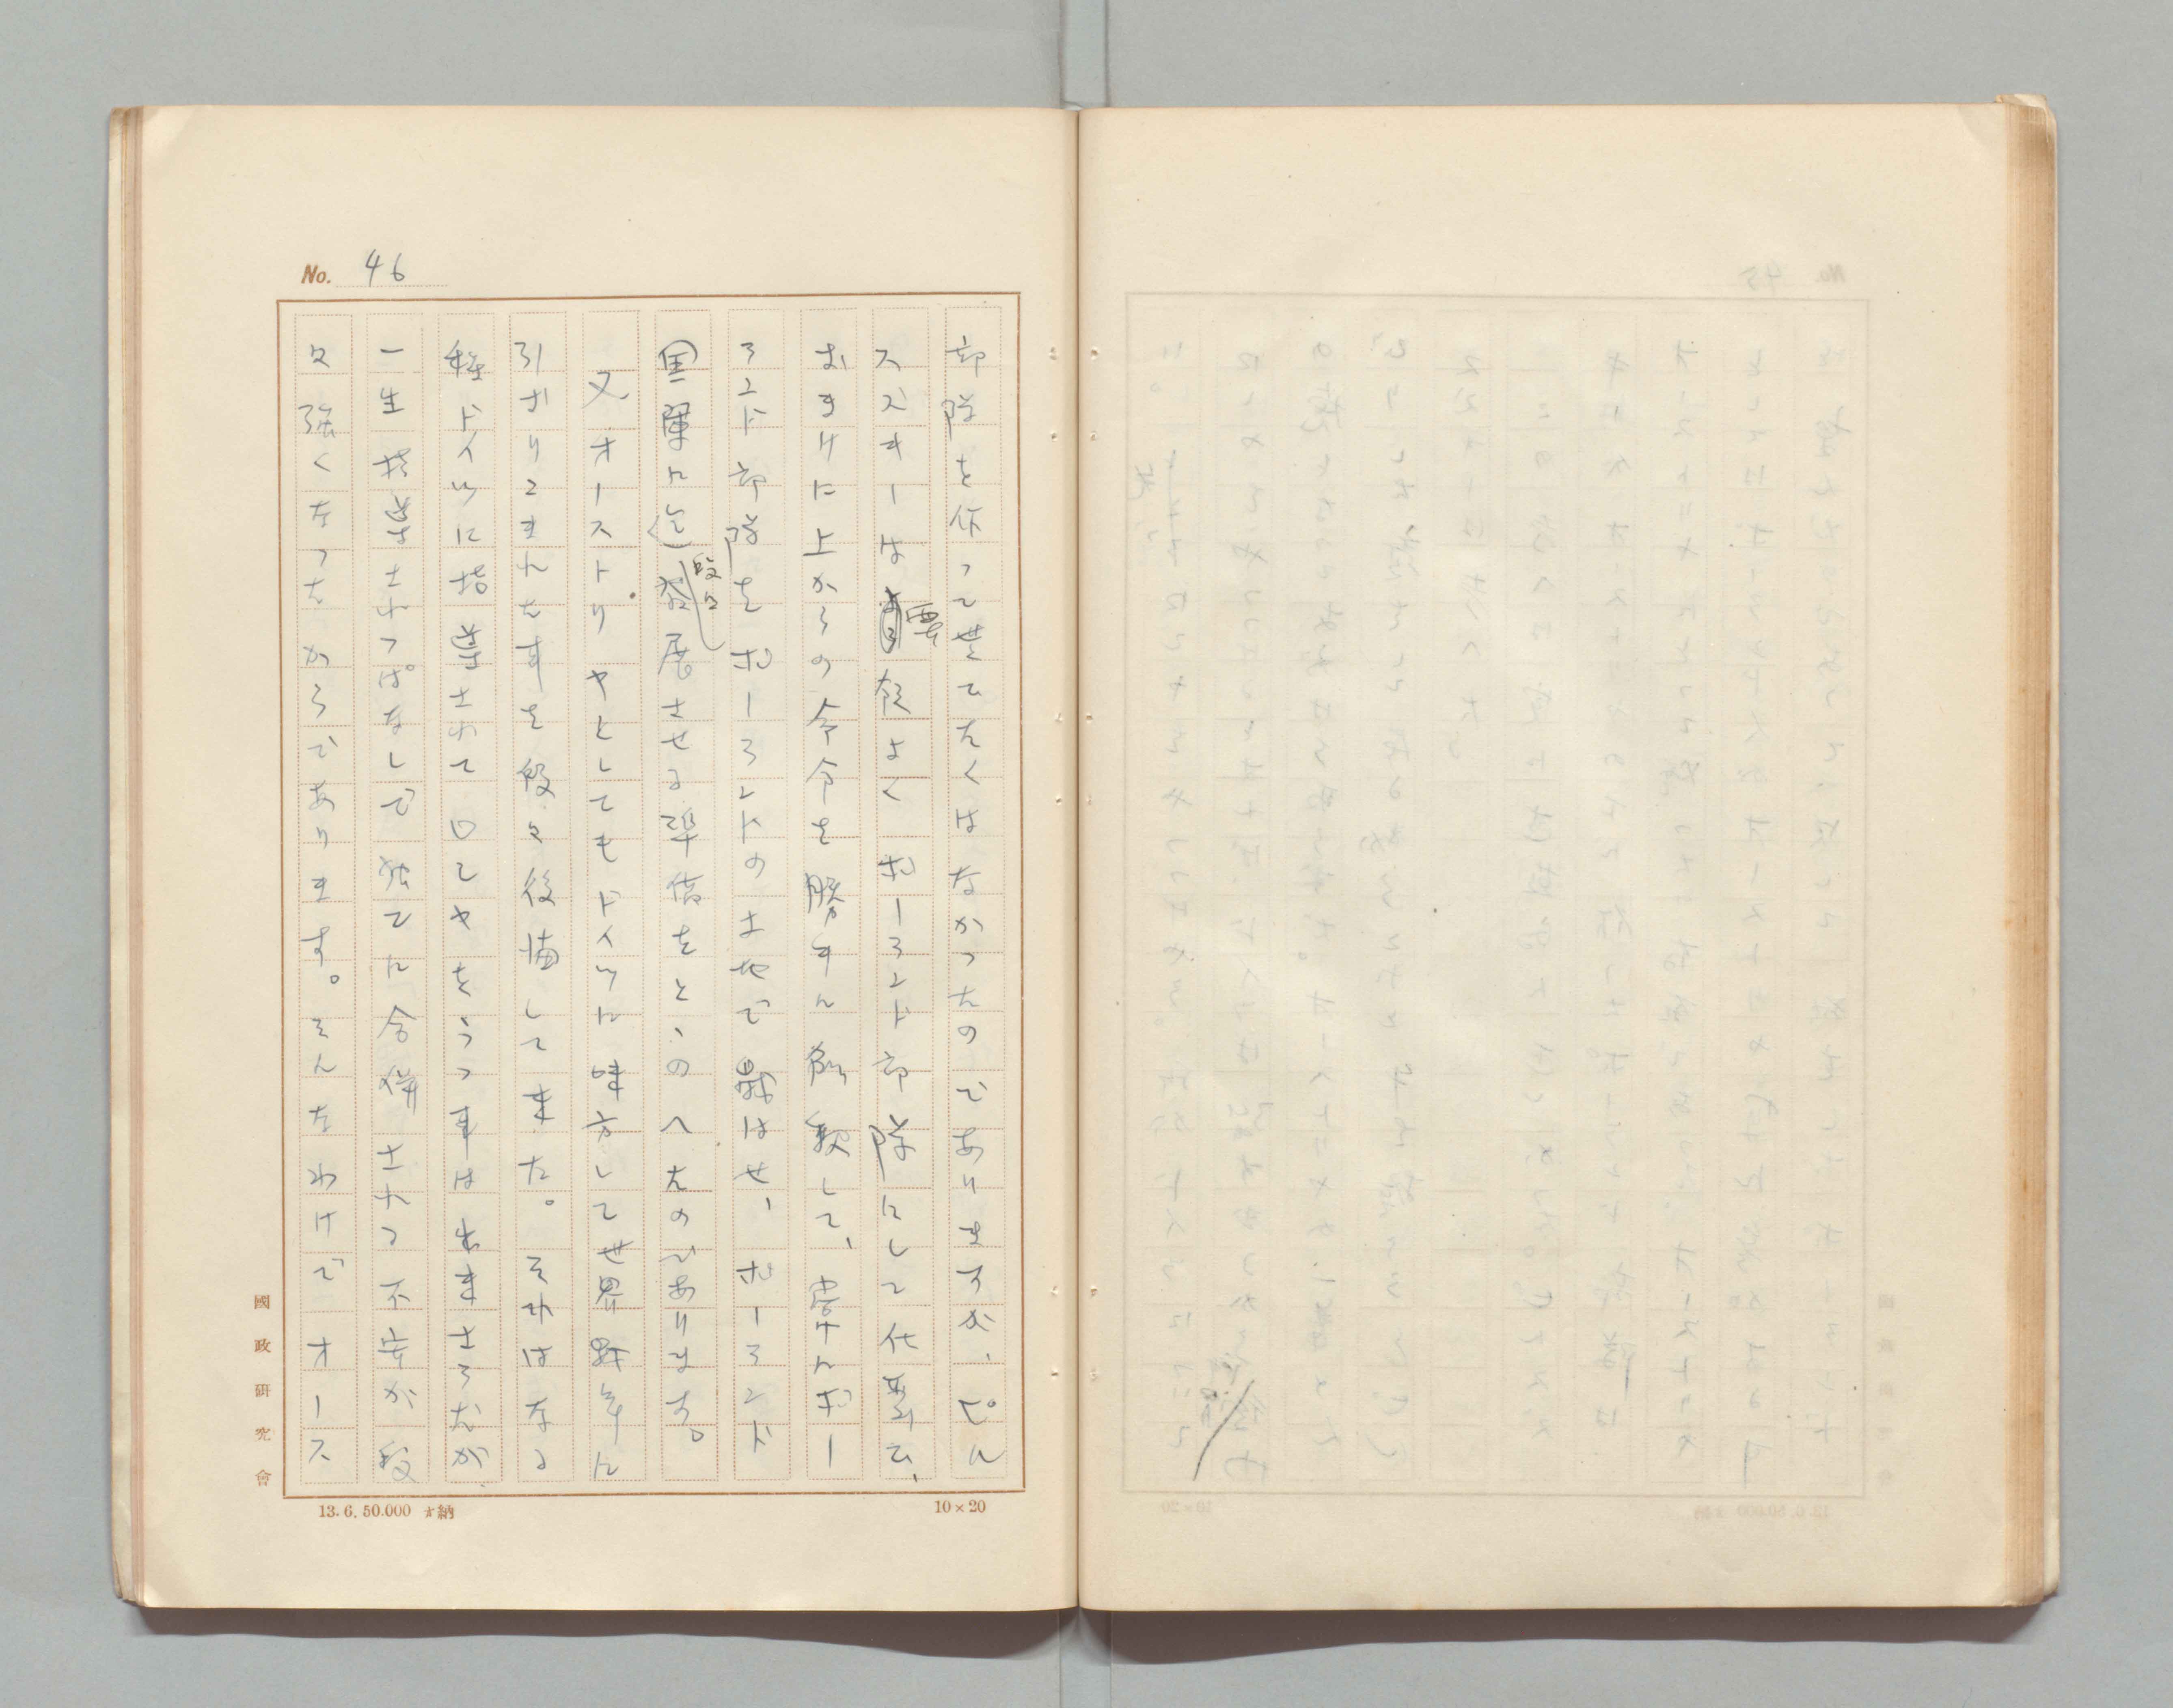 No. 46
部隊を作って貰ひたくはなかったのでありますが、ピル
スズキーは要領よくポーランド部隊にして仕舞ひ、
おまけに上からの命令を勝手に解釈して、常にポー
ランド部隊をポーランドの土地で戦はせ、ポーランド
国軍に迄段々発展させる準備をとゝのへたのであります。
又オーストリヤとしてもドイツに味方して世界戦争に
引ずりこまれた事を段々後悔して来た。それはなる
程ドイツに指導されてロシヤをうつ事は出来さうだが、
一生指導されっぱなしで独乙に合併される不安が段
々強くなったからであります。そんなわけでオース
國政研究會
13.6.50.000 才納
10×20